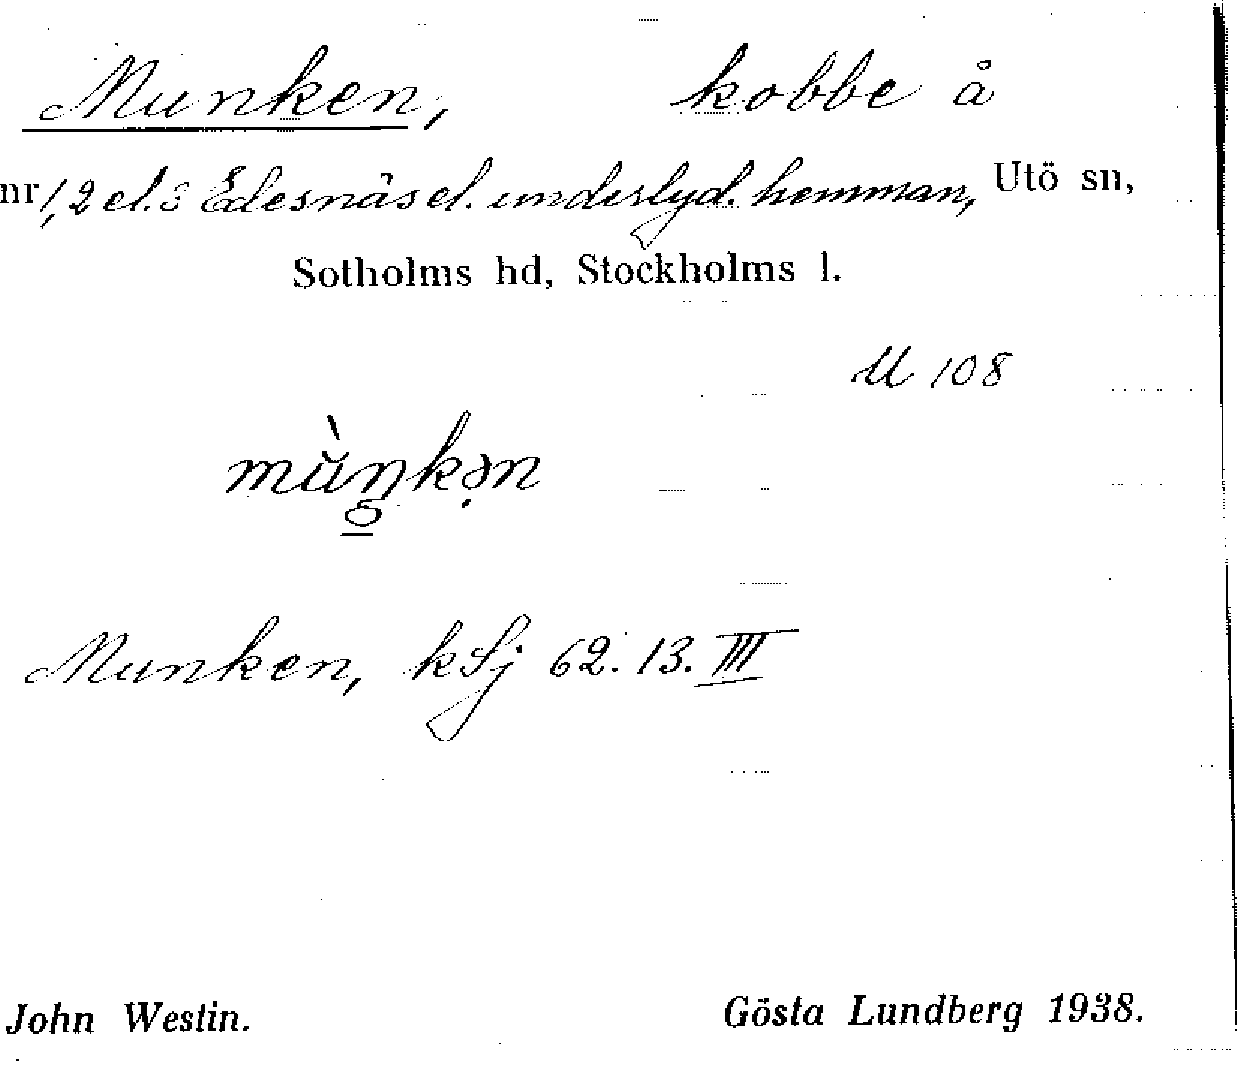 Munken, kobbe å
nr 1, 2 el. 3 Edesnäs el. underlyd. hemman, Utö sn,
Sotholms hd, Stockholms l.
U 108
mùŋkən
Munken, kSj 62. 13. III
John Westin. Gösta Lundberg 1938.